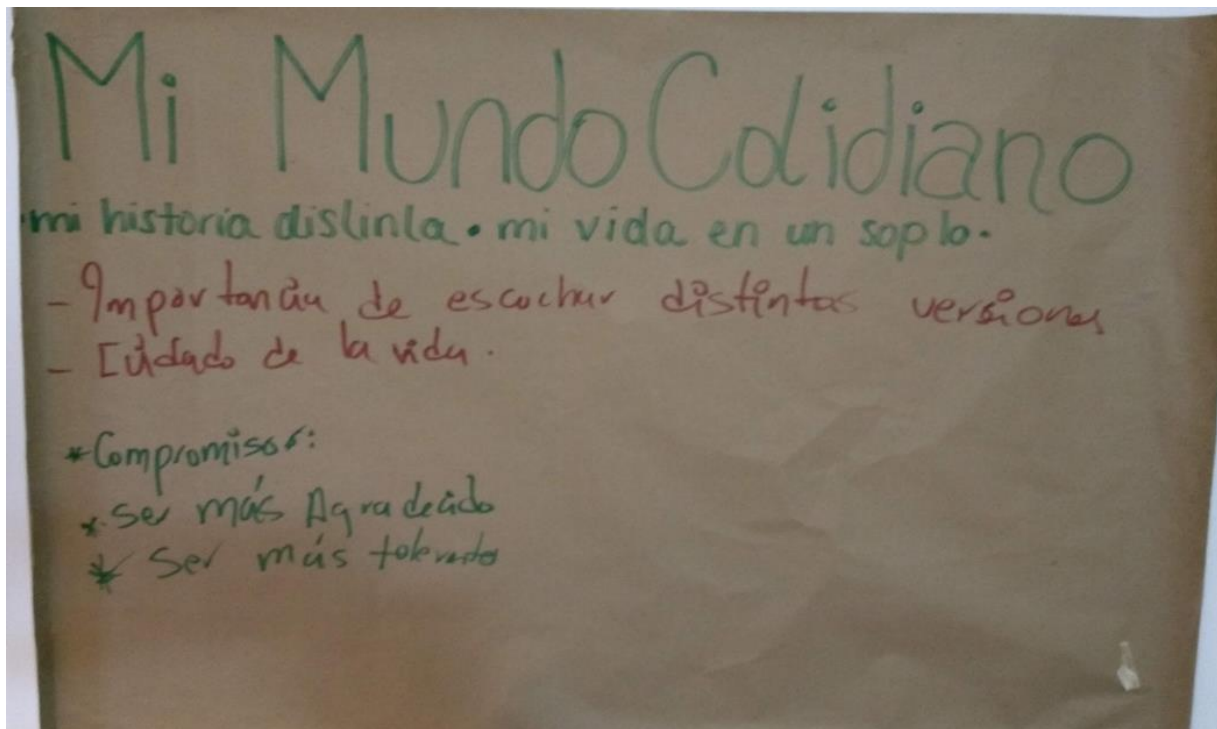 Mi Mundo Cotidiano
•mi historia distinta • mi vida en un soplo.
- Importancia de escochar distintas versiones
- Cuidado de la vida.
* Compromisos:
* Ser más Agradecido
* Ser más tolerantes